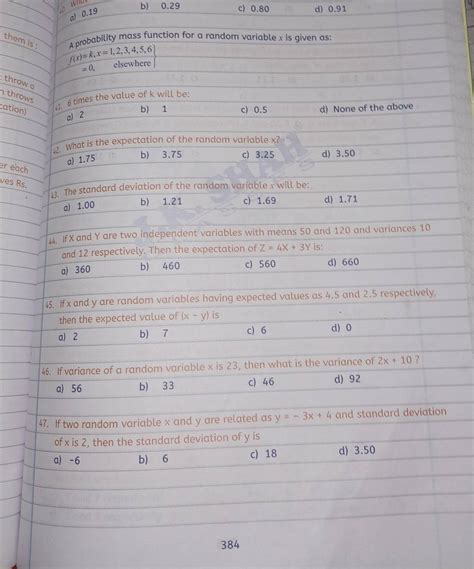 a) 0.19 b) 0.29 c) 0.80 d) 0.91
them is :
A probability mass function for a random variable x is given as:
f(x)= k, x = 1,2,3,4,5,6
= 0, elsewhere
throw a
throws
cation)
41. 6 times the value of k will be:
a) 2 b) 1 c) 0.5 d) None of the above
42. What is the expectation of the random variable x?
a) 1.75 b) 3.75 c) 3.25 d) 3.50
er each
ves Rs.
43. The standard deviation of the random variable x will be:
a) 1.00 b) 1.21 c) 1.69 d) 1.71
44. If X and Y are two independent variables with means 50 and 120 and variances 10
and 12 respectively. Then the expectation of Z = 4X + 3Y is:
a) 360 b) 460 c) 560 d) 660
45. If x and y are random variables having expected values as 4.5 and 2.5 respectively,
then the expected value of (x - y) is
a) 2 b) 7 c) 6 d) 0
46. If variance of a random variable x is 23, then what is the variance of 2x + 10 ?
a) 56 b) 33 c) 46 d) 92
47. If two random variable x and y are related as y = - 3x + 4 and standard deviation
of x is 2, then the standard deviation of y is
a) -6 b) 6 c) 18 d) 3.50
J.K. SHAH
384